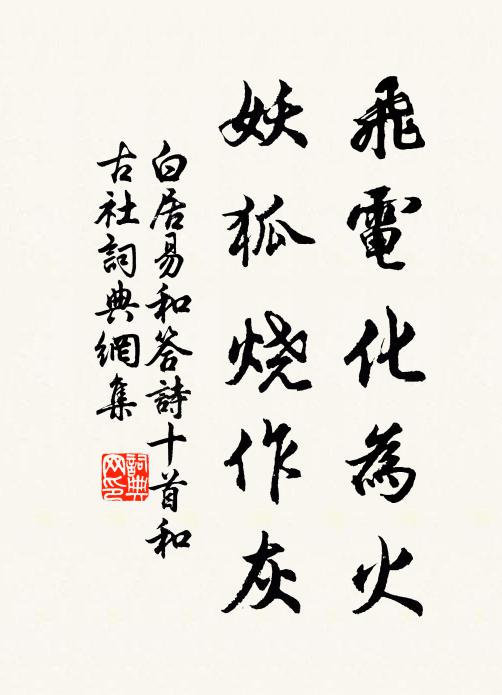 飛電化為火
妖狐烧作灰
白居易和答詩十首和
古社詞典網集
詞典网印